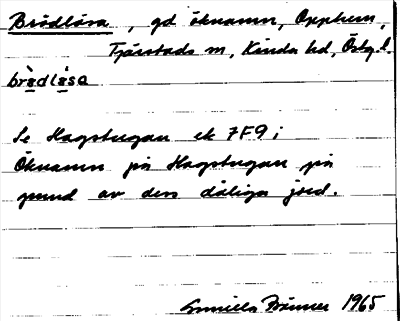 Brödlösa, gd öknamn, Opphem,
Tjärstads sn, Kinda hd, Östg. l.
brö̀dlö́sa
Se Hagstugan ek 7F9 i
Öknamn på Hagstugan på
grund av den dåliga jord.
Gunilla Bränner 1965